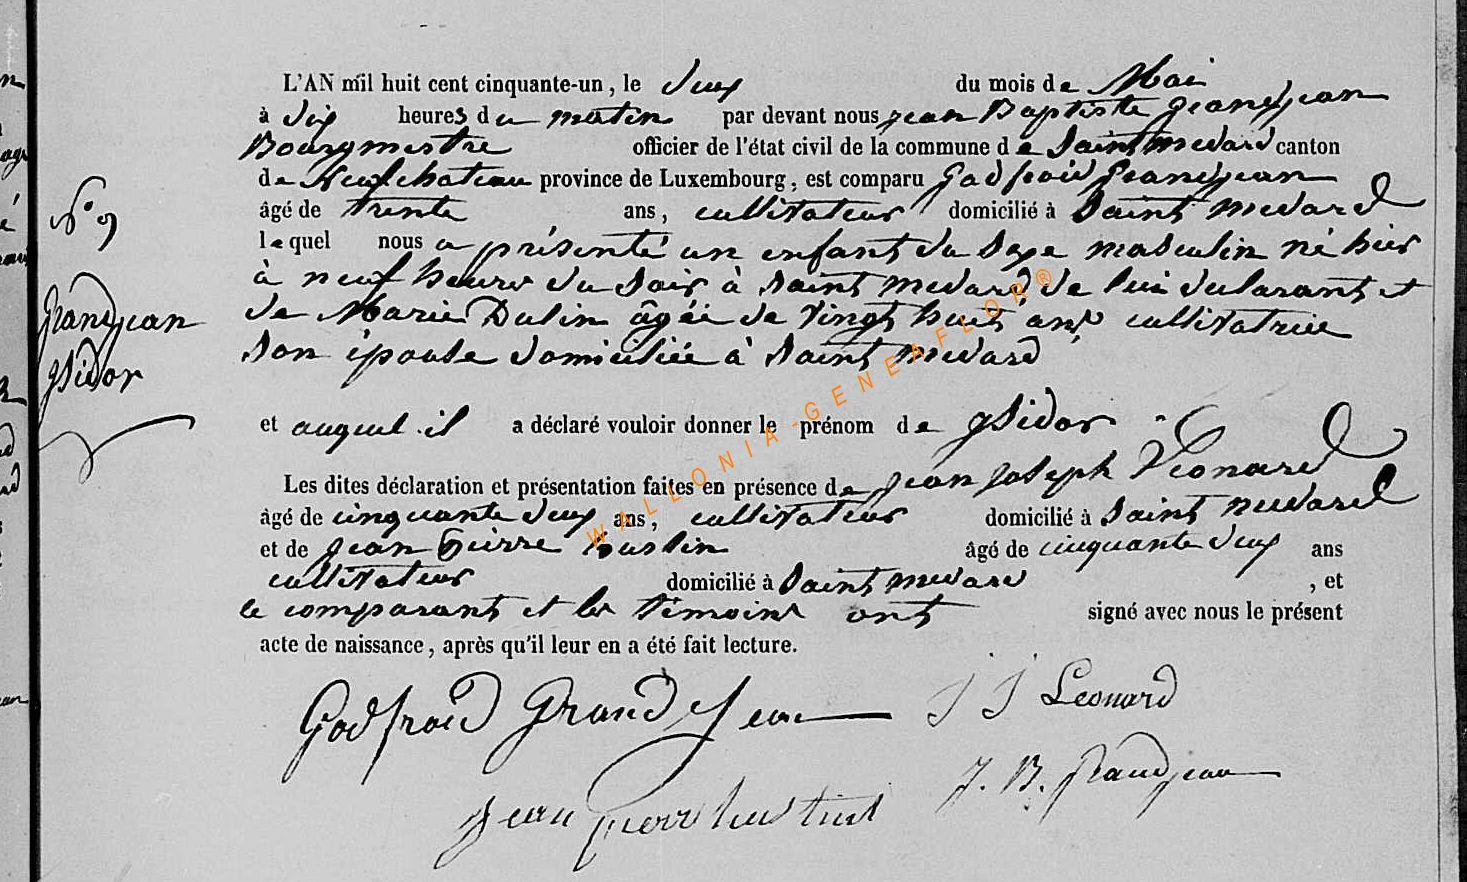 L'AN mil huit cent cinquante-un, le deux du mois de Mai
à dix heures du matin par devant nous jean Baptiste grandjean
Bourgmestre officier de l'état civil de la commune de Saint medard canton
de Neufchateau province de Luxembourg, est comparu Godfroid Grandjean
âgé de trente ans, cultivateur domicilié à Saint medard
lequel nous a présenté un enfant du sexe masculin né hier
à neuf heures du soir à Saint medard de lui déclarant et
de Marie Dulin âgée de vingt huit ans cultivatrice
son épouse domiciliée à Saint medard
et auquel il a déclaré vouloir donner le prénom de jsidor
Les dites déclaration et présentation faites en présence de jean joseph Léonard
âgé de cinquante deux ans, cultivateur domicilié à Saint medard
et de jean Pierre âgé de cinquante deux ans
cultivateur domicilié à Saint medard, et
le comparant et les témoins ont signé avec nous le présent
acte de naissance, après qu'il leur en a été fait lecture.
Godfroid Grandjean J J Leonard
jean pierre J. B. Grandjean
N° 9
grandjean
jsidor
WALLONIA-GENEAFLOR®